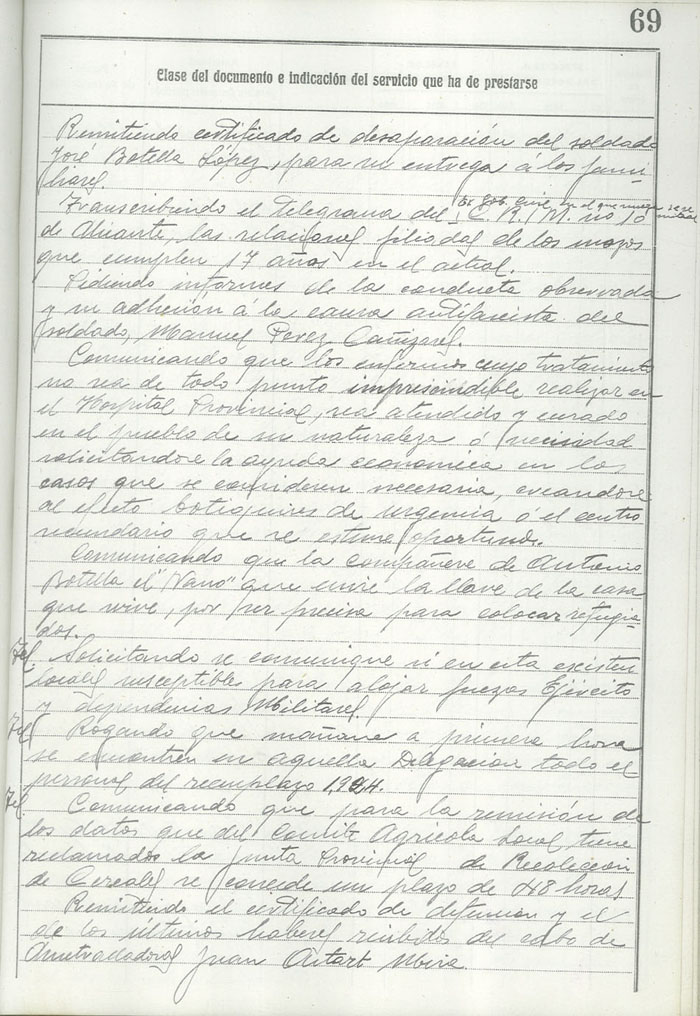 69
Clase del documento e indicación del servicio que ha de prestarse
Remitiendo certificado de desaparación del soldado
José Botella López, para su entrega á los fami-
liares.
Transcribiendo el telegrama del C. R. I. M. nº 10
de Alicante, las relaciones filiadas de los mozos
que cumplen 17 años en el actual.
Pidiendo informes de la conducta observada
y su adhesión á la causa antifascista del
soldado, Manuel Perez Cañizares.
Comunicando que los enfermos cuyo tratamiento
no sea de todo punto imprescindible realizar en
el Hospital Provincial, sea atendido y curado
en el pueblo de su naturaleza ó necisidad
solicitandose la ayuda economica en los
casos que se consideren necesaria, creandose
al efecto botiquines de urgencia ó el centro
secundario que se estime oportuno.
Comunicando que la compañera de Antonio
Botella el "Nano" que envie la llave de la casa
que vive, por ser precisa para colocar refugia-
dos.
Tel. Solicitando se comunique si en esta existen
locales susceptibles para alojar fuezas Ejército
y dependencias Militares.
Tel. Rogando que mañana a primera hora
se encuentren en aquella Delegacion todo el
personal del reemplazo 1,944.
Tel. Comunicando que para la remisión de
los datos que del Comité Agricola Local tiene
reclamados la Junta Provincial de Recoleccion
de Cereales se concede un plazo de 48 horas
Remitiendo el certificado de defuncion y el
de los últimos haberes recibidos del cabo de
Ametralladoras Juan